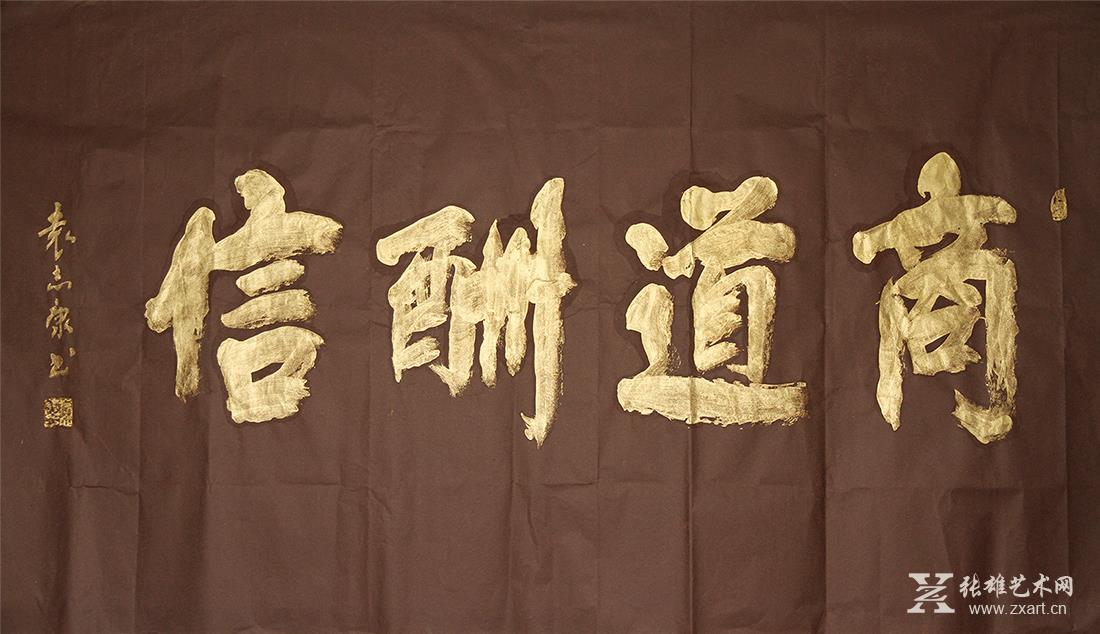 商道酬信
袁志康书
张雄艺术网
www.zxart.cn